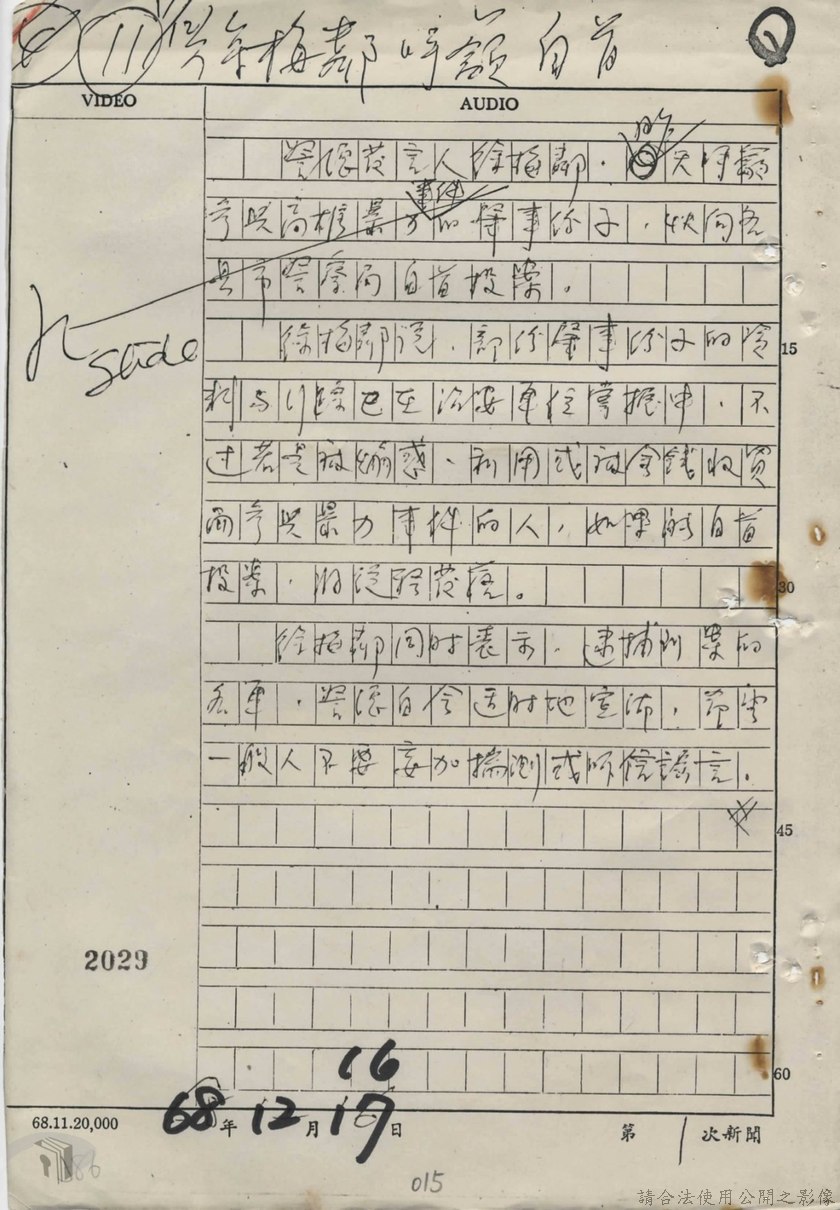 11 徐梅鄰呼籲自首
Q
VIDEO
AUDIO
警總發言人徐梅鄰,昨天呼籲
事件
參與高雄暴力的肇事份子,快向各
縣市警察局自首投案。
slide
徐梅鄰說,部份肇事份子的資
15
料與行蹤已在治安單位掌握中,不
过若是被煽惑、利用或被金錢收買
而參與暴力事件的人,如果能自首
投案,將從輕發落。
30
徐梅鄰同时表示,逮捕到案的
名單,警總自会适时地宣佈,希望
一般人不要妄加揣測或聽信謠言。
45
2029
60
16
68年12月17日
68.11.20,000
第1次新聞
015
請合法使用公開之影像